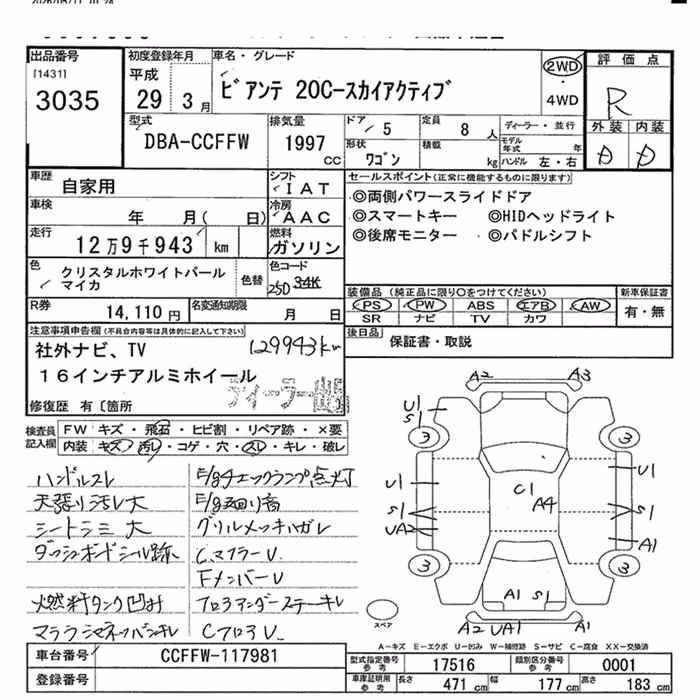 出品番号
[1431]
3035
初度登録年月
平成
29 3月
車名・グレード
ビアンテ 20C-スカイアクティブ
2WD
・
4WD
評価点
R
外装 内装
D D
型式
DBA-CCFFW
排気量
1997
CC
ドア 5
形状 ワゴン
定員 8 人
積載 kg
ディーラー・並行
モデル年式 年
ハンドル 左・右
車歴
自家用
シフト
IAT
車検
年 月( 日)
冷房
AAC
走行
12万9千943 km
燃料
ガソリン
色
クリスタルホワイトパール
マイカ
色替
色コード
25D 34K
R券
14,110円
名変通知期限
月 日
セールスポイント(正常に機能するものに限ります)
◎両側パワースライドドア
◎スマートキー ◎HIDヘッドライト
◎後席モニター ◎パドルシフト
装備品 (純正品に限り○をつけてください)
PS PW ABS エアB AW
SR ナビ TV カワ
新車保証書
有・無
後日品
保証書・取説
注意事項申告欄(不具合内容等は具体的に記入して下さい)
社外ナビ、TV
129943km
16インチアルミホイール
修復歴 有〔箇所
検査員記入欄
FW キズ・飛石・ヒビ割・リペア跡・×要
内装 キズ・汚レ・コゲ・穴・スレ・キレ・破レ
ハンドルスレ
天張り汚レ大
シートシミ大
ダッシュボードシール跡
燃料タンク凹み
E/gチェックランプ点灯
グリルメッキハガレ
C.マフラーU
FメンバーU
フロアアンダーステーキレ
CフロアU
A2 A3
U1
S1
3 3
U1 U1
C1
A4
S1 S1
UA2 A1
3 3
A1 S1
A2 UA1 A1
スペア
A-キズ E-エクボ U-凹み W-補修跡 S-サビ C-腐食 XX-交換済
車台番号
CCFFW-117981
登録番号
型式指定番号参考
17516
類別区分番号参考
0001
車庫証明用参考
長さ 471 cm
幅 177 cm
高さ 183 cm